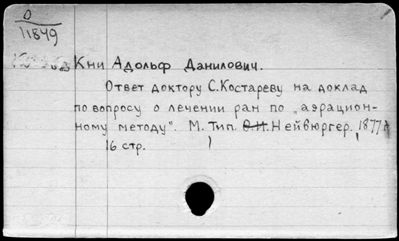 О
11849
Кни Адольф Данилович.
Ответ доктору С. Костареву на доклад
по вопросу о лечении ран по „аэрацион-
ному методу". М. Тип. Нейвюргер, 1877
16 стр.